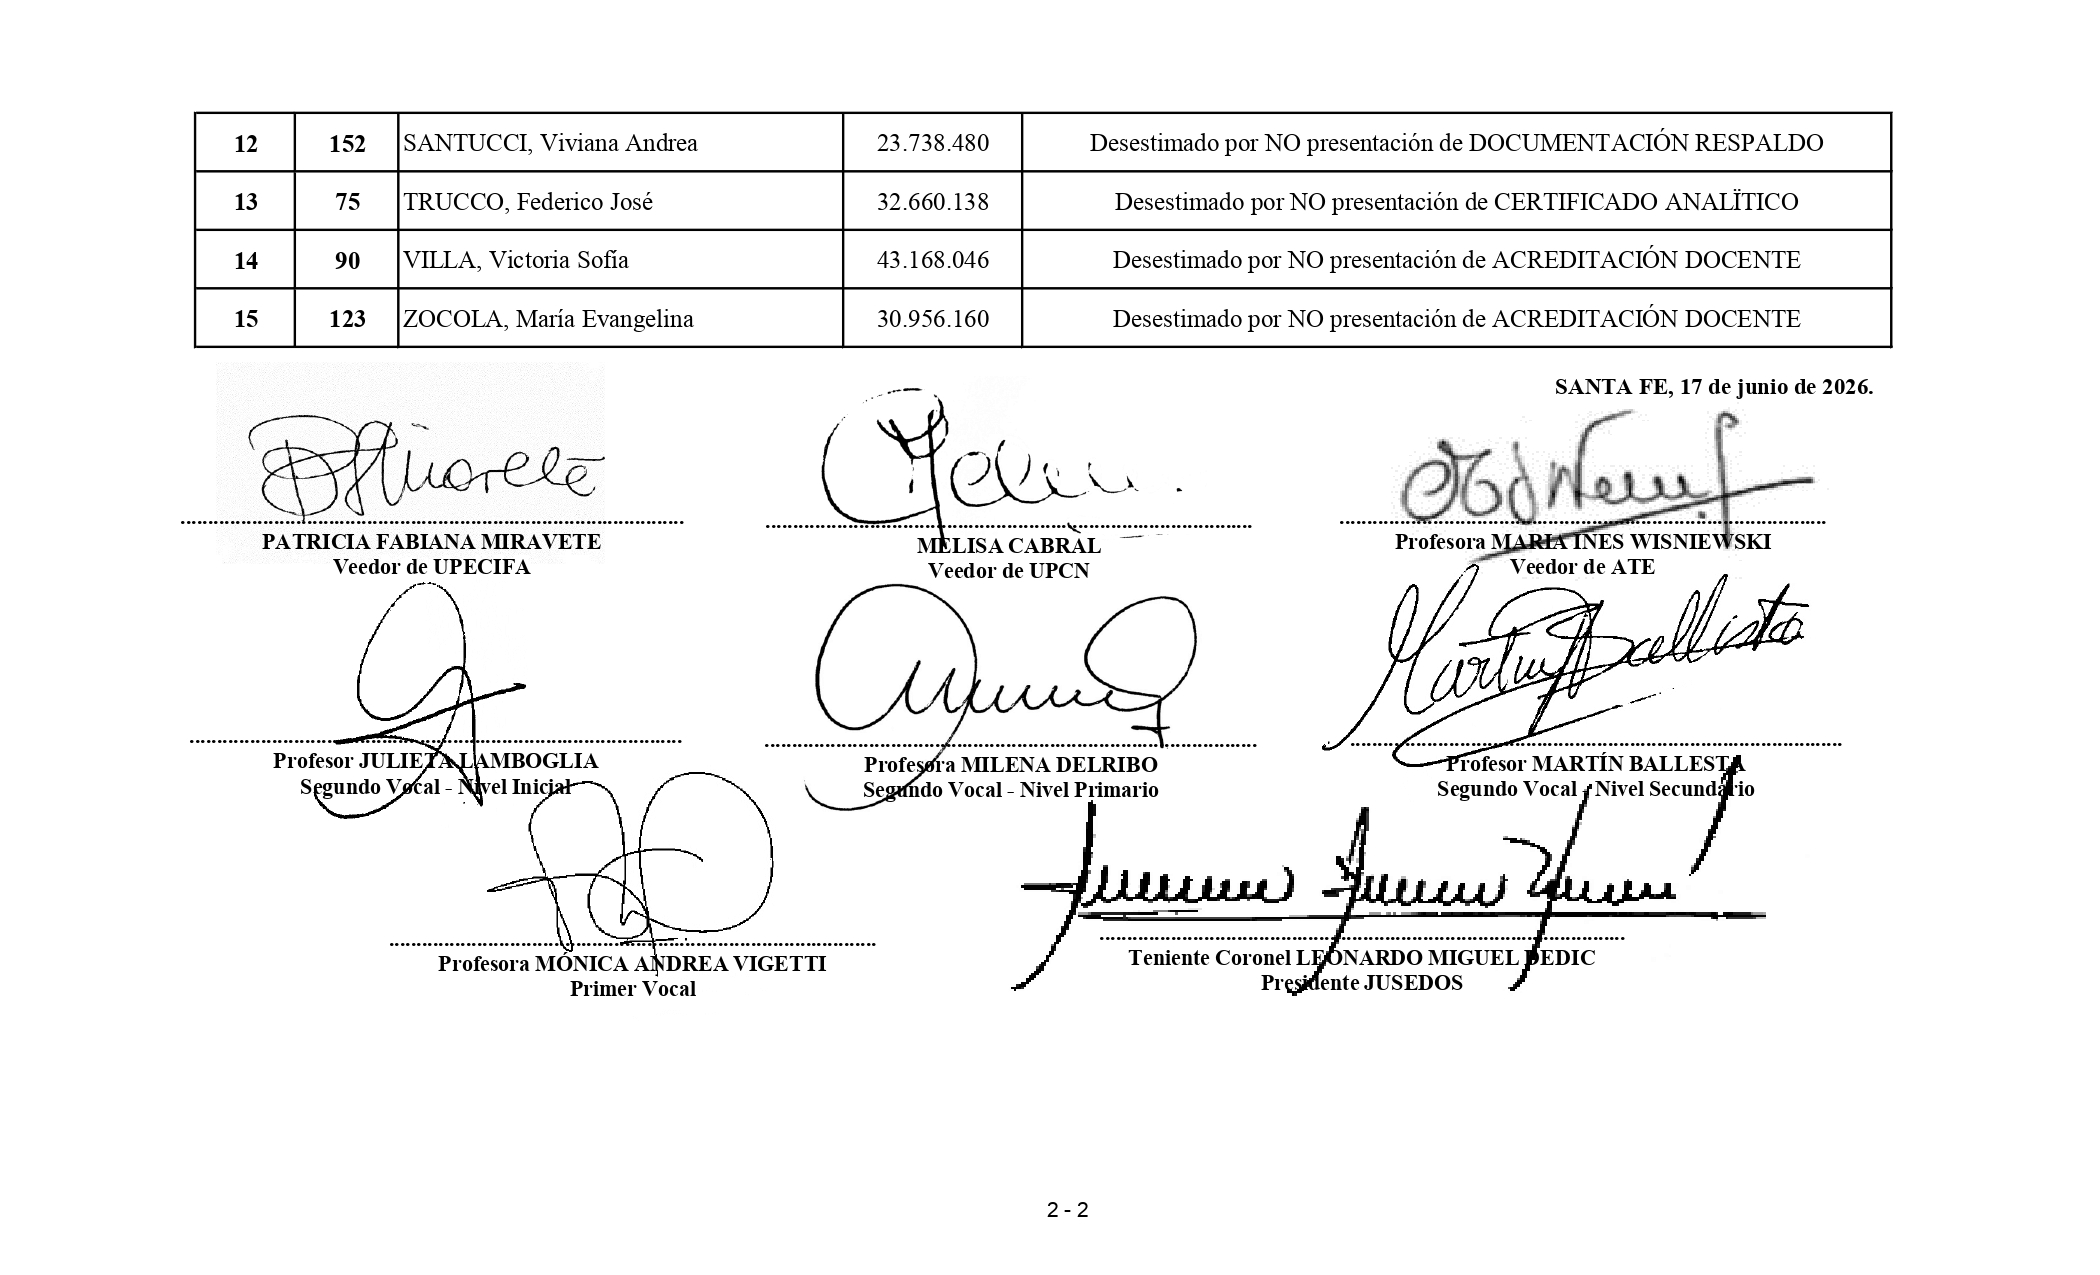 12 152 SANTUCCI, Viviana Andrea 23.738.480 Desestimado por NO presentación de DOCUMENTACIÓN RESPALDO
13 75 TRUCCO, Federico José 32.660.138 Desestimado por NO presentación de CERTIFICADO ANALÏTICO
14 90 VILLA, Victoria Sofía 43.168.046 Desestimado por NO presentación de ACREDITACIÓN DOCENTE
15 123 ZOCOLA, María Evangelina 30.956.160 Desestimado por NO presentación de ACREDITACIÓN DOCENTE
SANTA FE, 17 de junio de 2026.
PATRICIA FABIANA MIRAVETE
Veedor de UPECIFA
MELISA CABRAL
Veedor de UPCN
Profesora MARIA INES WISNIEWSKI
Veedor de ATE
Martín Ballesta
Profesor JULIETA LAMBOGLIA
Segundo Vocal - Nivel Inicial
Profesora MILENA DELRIBO
Segundo Vocal - Nivel Primario
Profesor MARTÍN BALLESTA
Segundo Vocal - Nivel Secundario
Profesora MÓNICA ANDREA VIGETTI
Primer Vocal
Teniente Coronel LEONARDO MIGUEL DEDIC
Presidente JUSEDOS
2 - 2